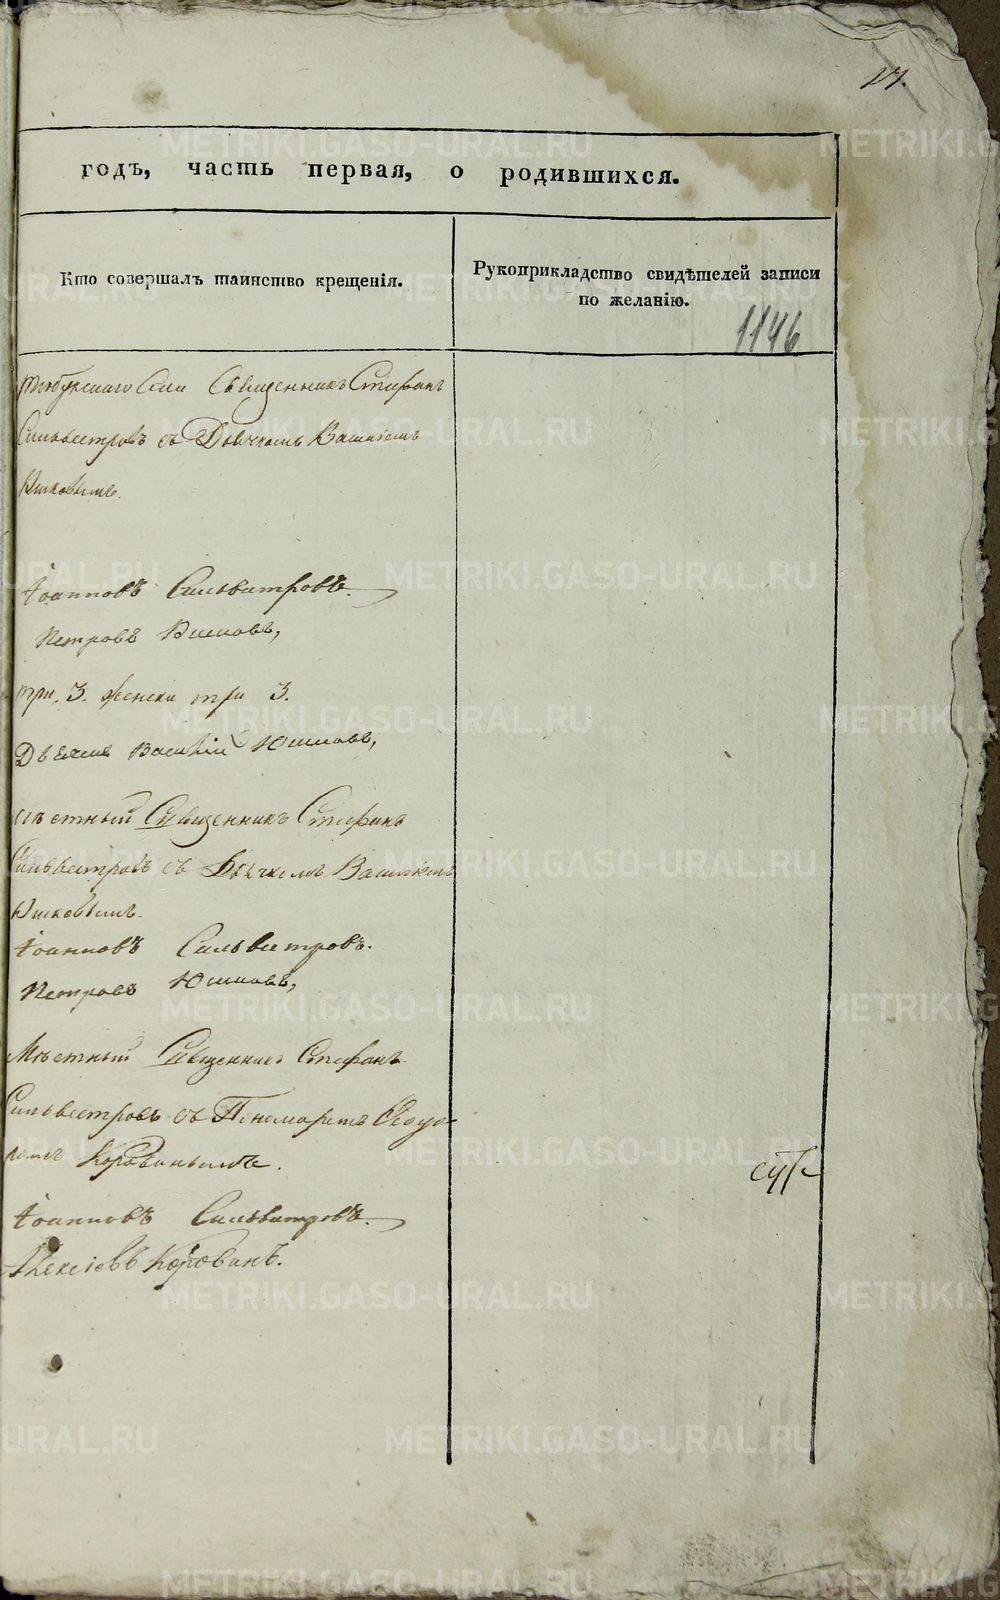 17.
годъ, часть первая, о родившихся.
Кто совершалъ таинство крещенія.
Рукоприкладство свидѣтелей записи
по желанію.
1146
Села Священникъ Стефанъ
Сильвестровъ съ Дьячкомъ Василіемъ
Юшковымъ.
Іоанновъ Сильвестровъ.
Петровъ Юшковъ,
три. 3. женска три 3.
Дьячекъ Василій Юшковъ,
мѣстный Священникъ Стефанъ
Сильвестровъ съ Дьячкомъ Василіемъ
Юшковымъ.
Іоанновъ Сильвестровъ.
Петровъ Юшковъ,
Мѣстный Священникъ Стефанъ
Сильвестровъ съ Пономаремъ
Корованымъ.
Іоанновъ Сильвестровъ.
Алексіевъ Корованъ.
METRIKI.GASO-URAL.RU